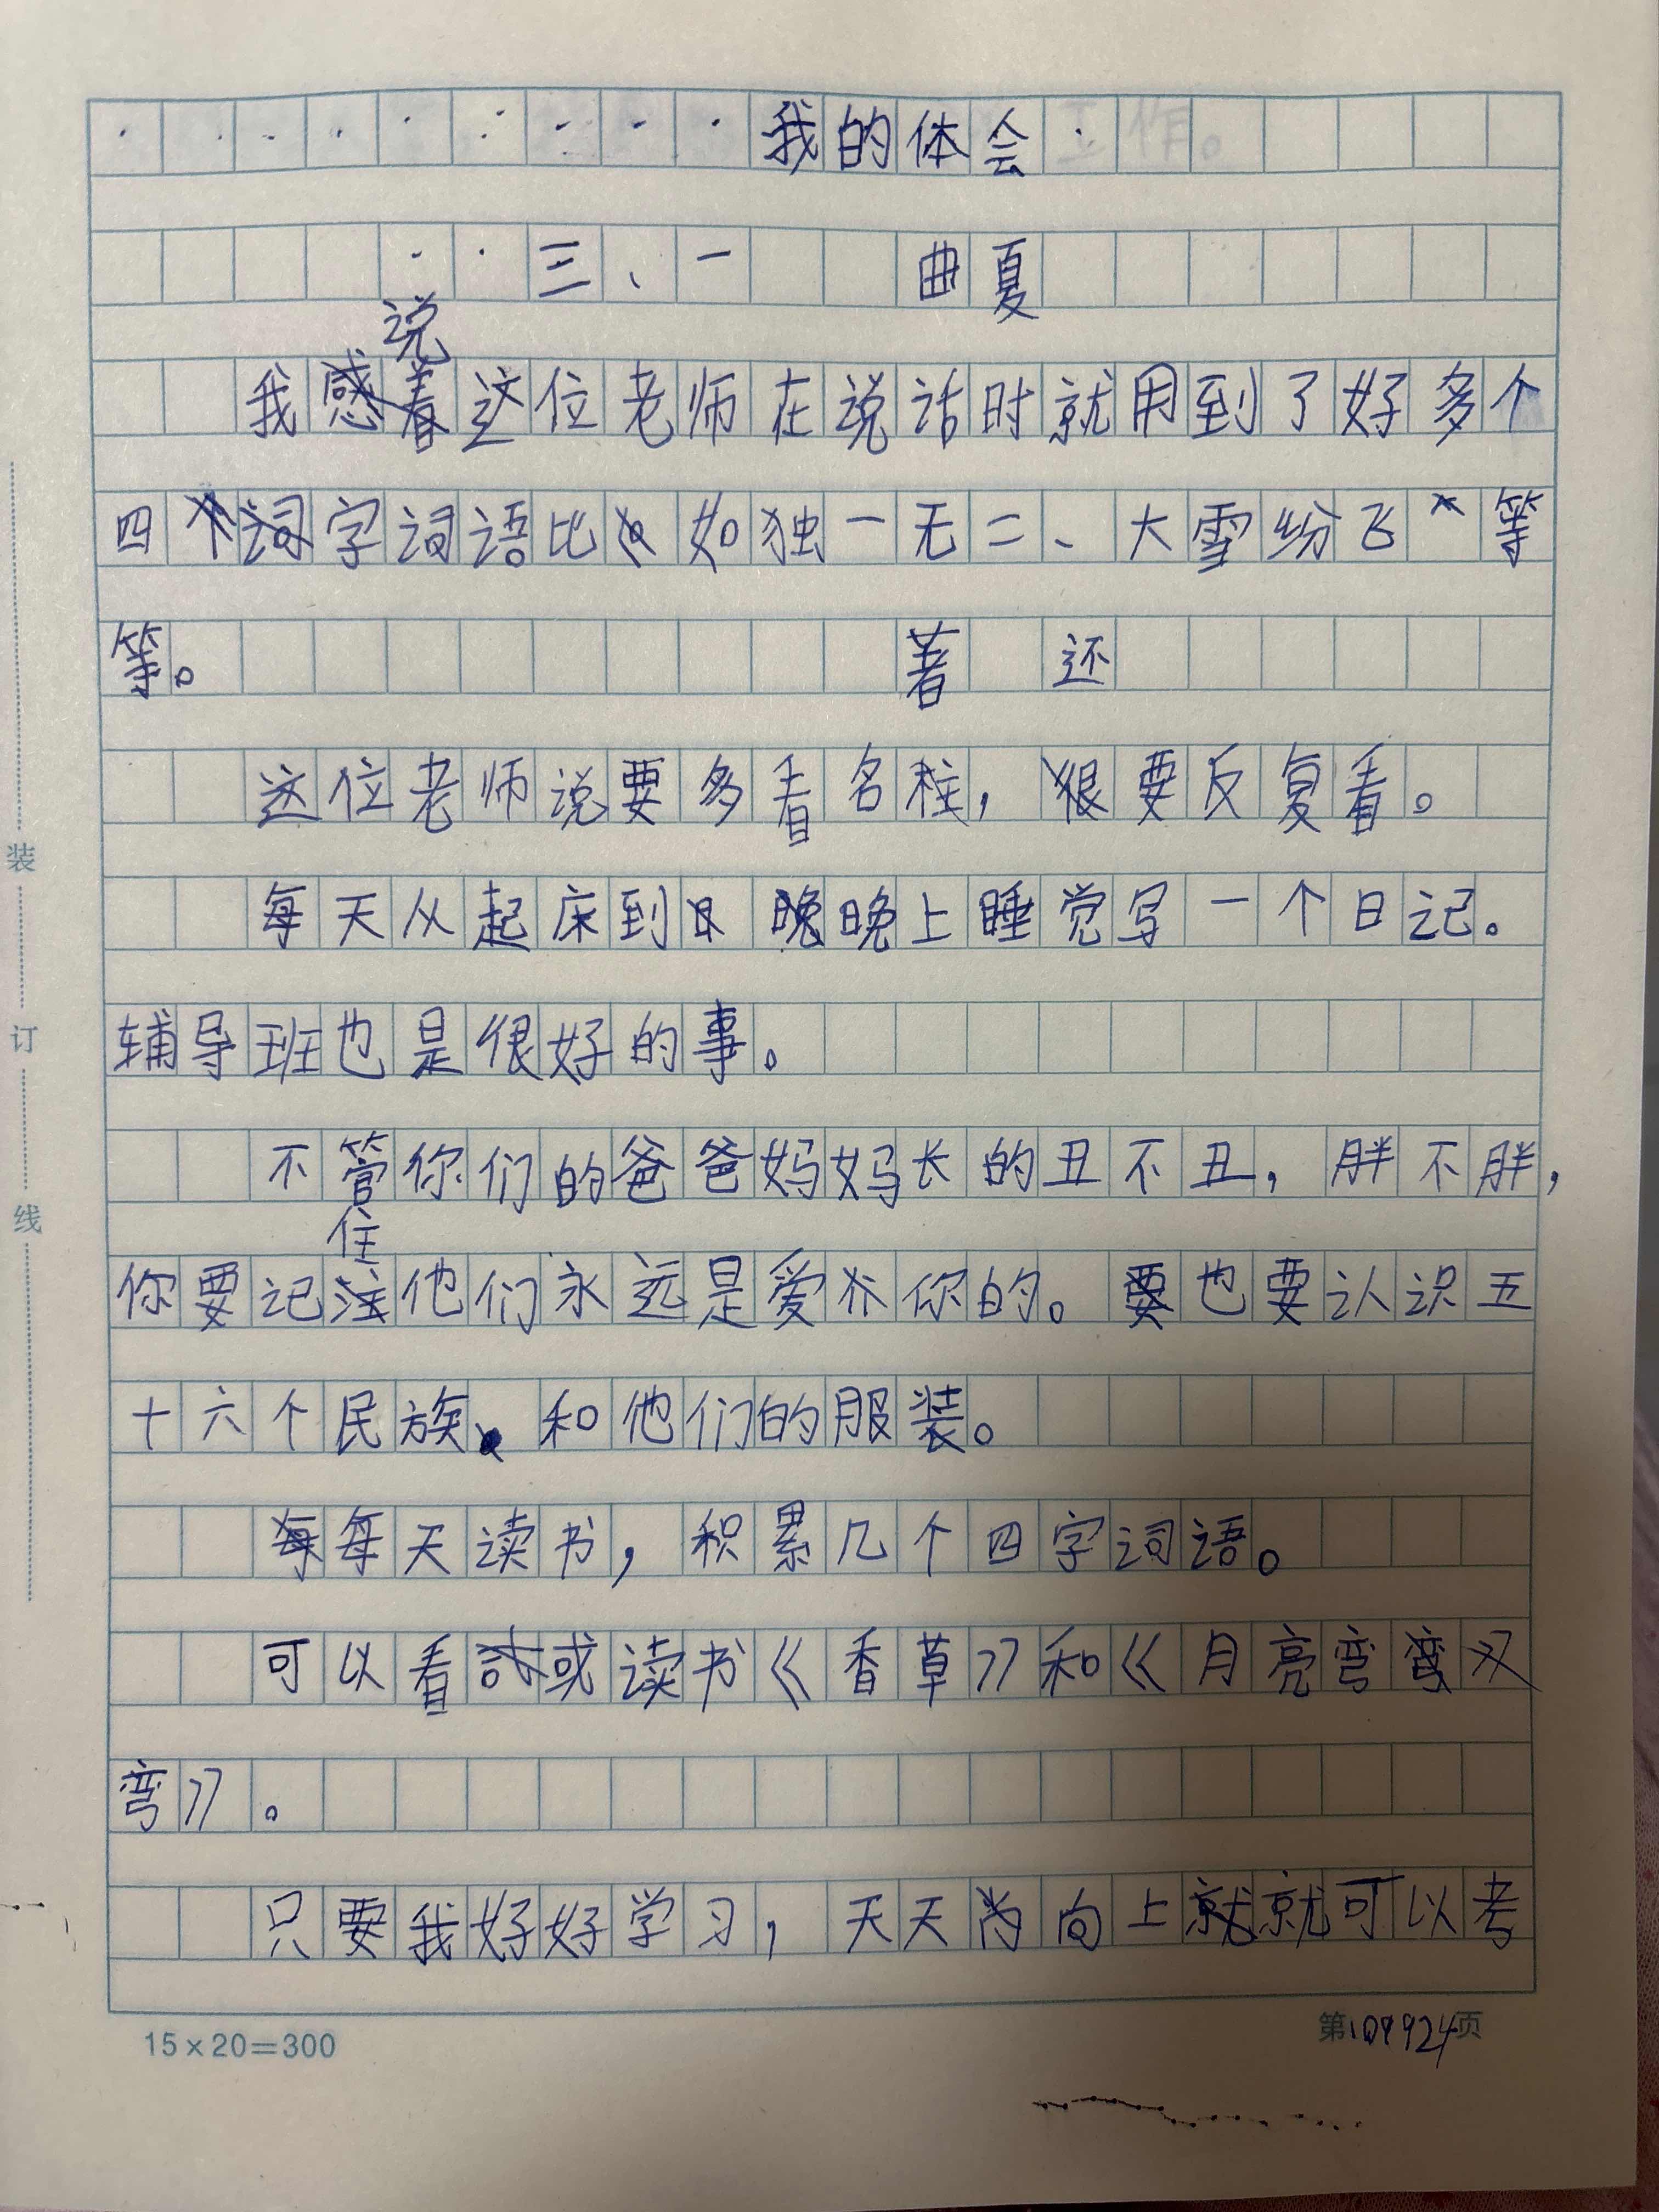 我的体会
三、一 曲夏
说
我感着这位老师在说话时就用到了好多个
四字词语比如独一无二、大雪纷飞等
等。
著 还
这位老师说要多看名柱，狠要反复看。
每天从起床到晚上睡觉写一个日记。
辅导班也是很好的事。
不管你们的爸爸妈妈长的丑不丑，胖不胖，
住
你要记注他们永远是爱你的。也要认识五
十六个民族、和他们的服装。
每天读书，积累几个四字词语。
可以看或读书《香草》和《月亮弯弯
弯》。
只要我好好学习，天天向上就可以考
装
订
线
15×20=300
第 页